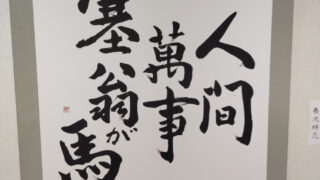 人間
萬事
塞翁が
馬